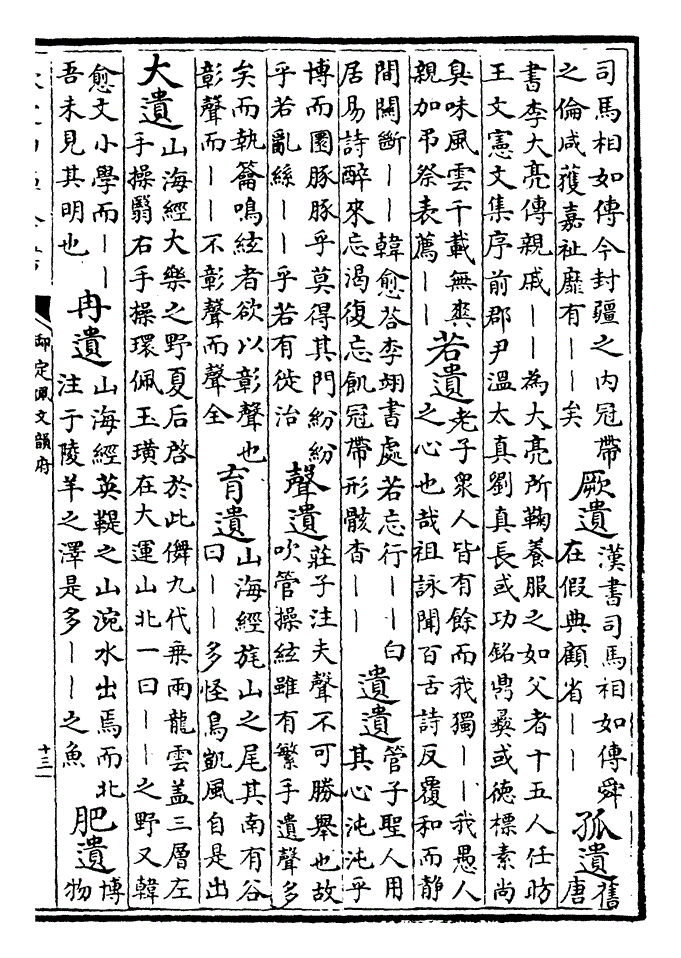 司馬相如傳今封疆之内冠帶
之倫咸獲嘉祉靡有｜｜矣
厥遺
漢書司馬相如傳舜
在假典顧省｜｜
孤遺
舊
唐
書李大亮傳親戚｜｜為大亮所鞠養服之如父者十五人任昉
王文憲文集序前郡尹溫太真劉真長或功銘鼎彝或徳標素尚
臭味風雲千載無爽
親加吊祭表薦｜｜
若遺
老子衆人皆有餘而我獨｜｜我愚人
之心也哉祖詠聞百舌詩反覆和而靜
間關斷｜｜韓愈荅李翊書處若忘行｜｜白
居易詩醉來忘渴復忘飢冠帶形骸杳｜｜
遺遺
管子聖人用
其心沌沌乎
博而圜豚豚乎莫得其門紛紛
乎若亂絲｜｜乎若有從治
聲遺
莊子注夫聲不可勝舉也故
吹管操絃雖有繁手遺聲多
矣而執籥鳴絃者欲以彰聲也
彰聲而｜｜不彰聲而聲全
育遺
山海經旄山之尾其南有谷
曰｜｜多怪鳥凱風自是出
大遺
山海經大樂之野夏后啓於此儛九代乗兩龍雲盖三層左
手操翳右手操環佩玉璜在大運山北一曰｜｜之野又韓
愈文小學而｜｜
吾未見其明也
冉遺
山海經英鞮之山涴水出焉而北
注于陵羊之澤是多｜｜之魚
肥遺
博
物
御定佩文韻府
十三